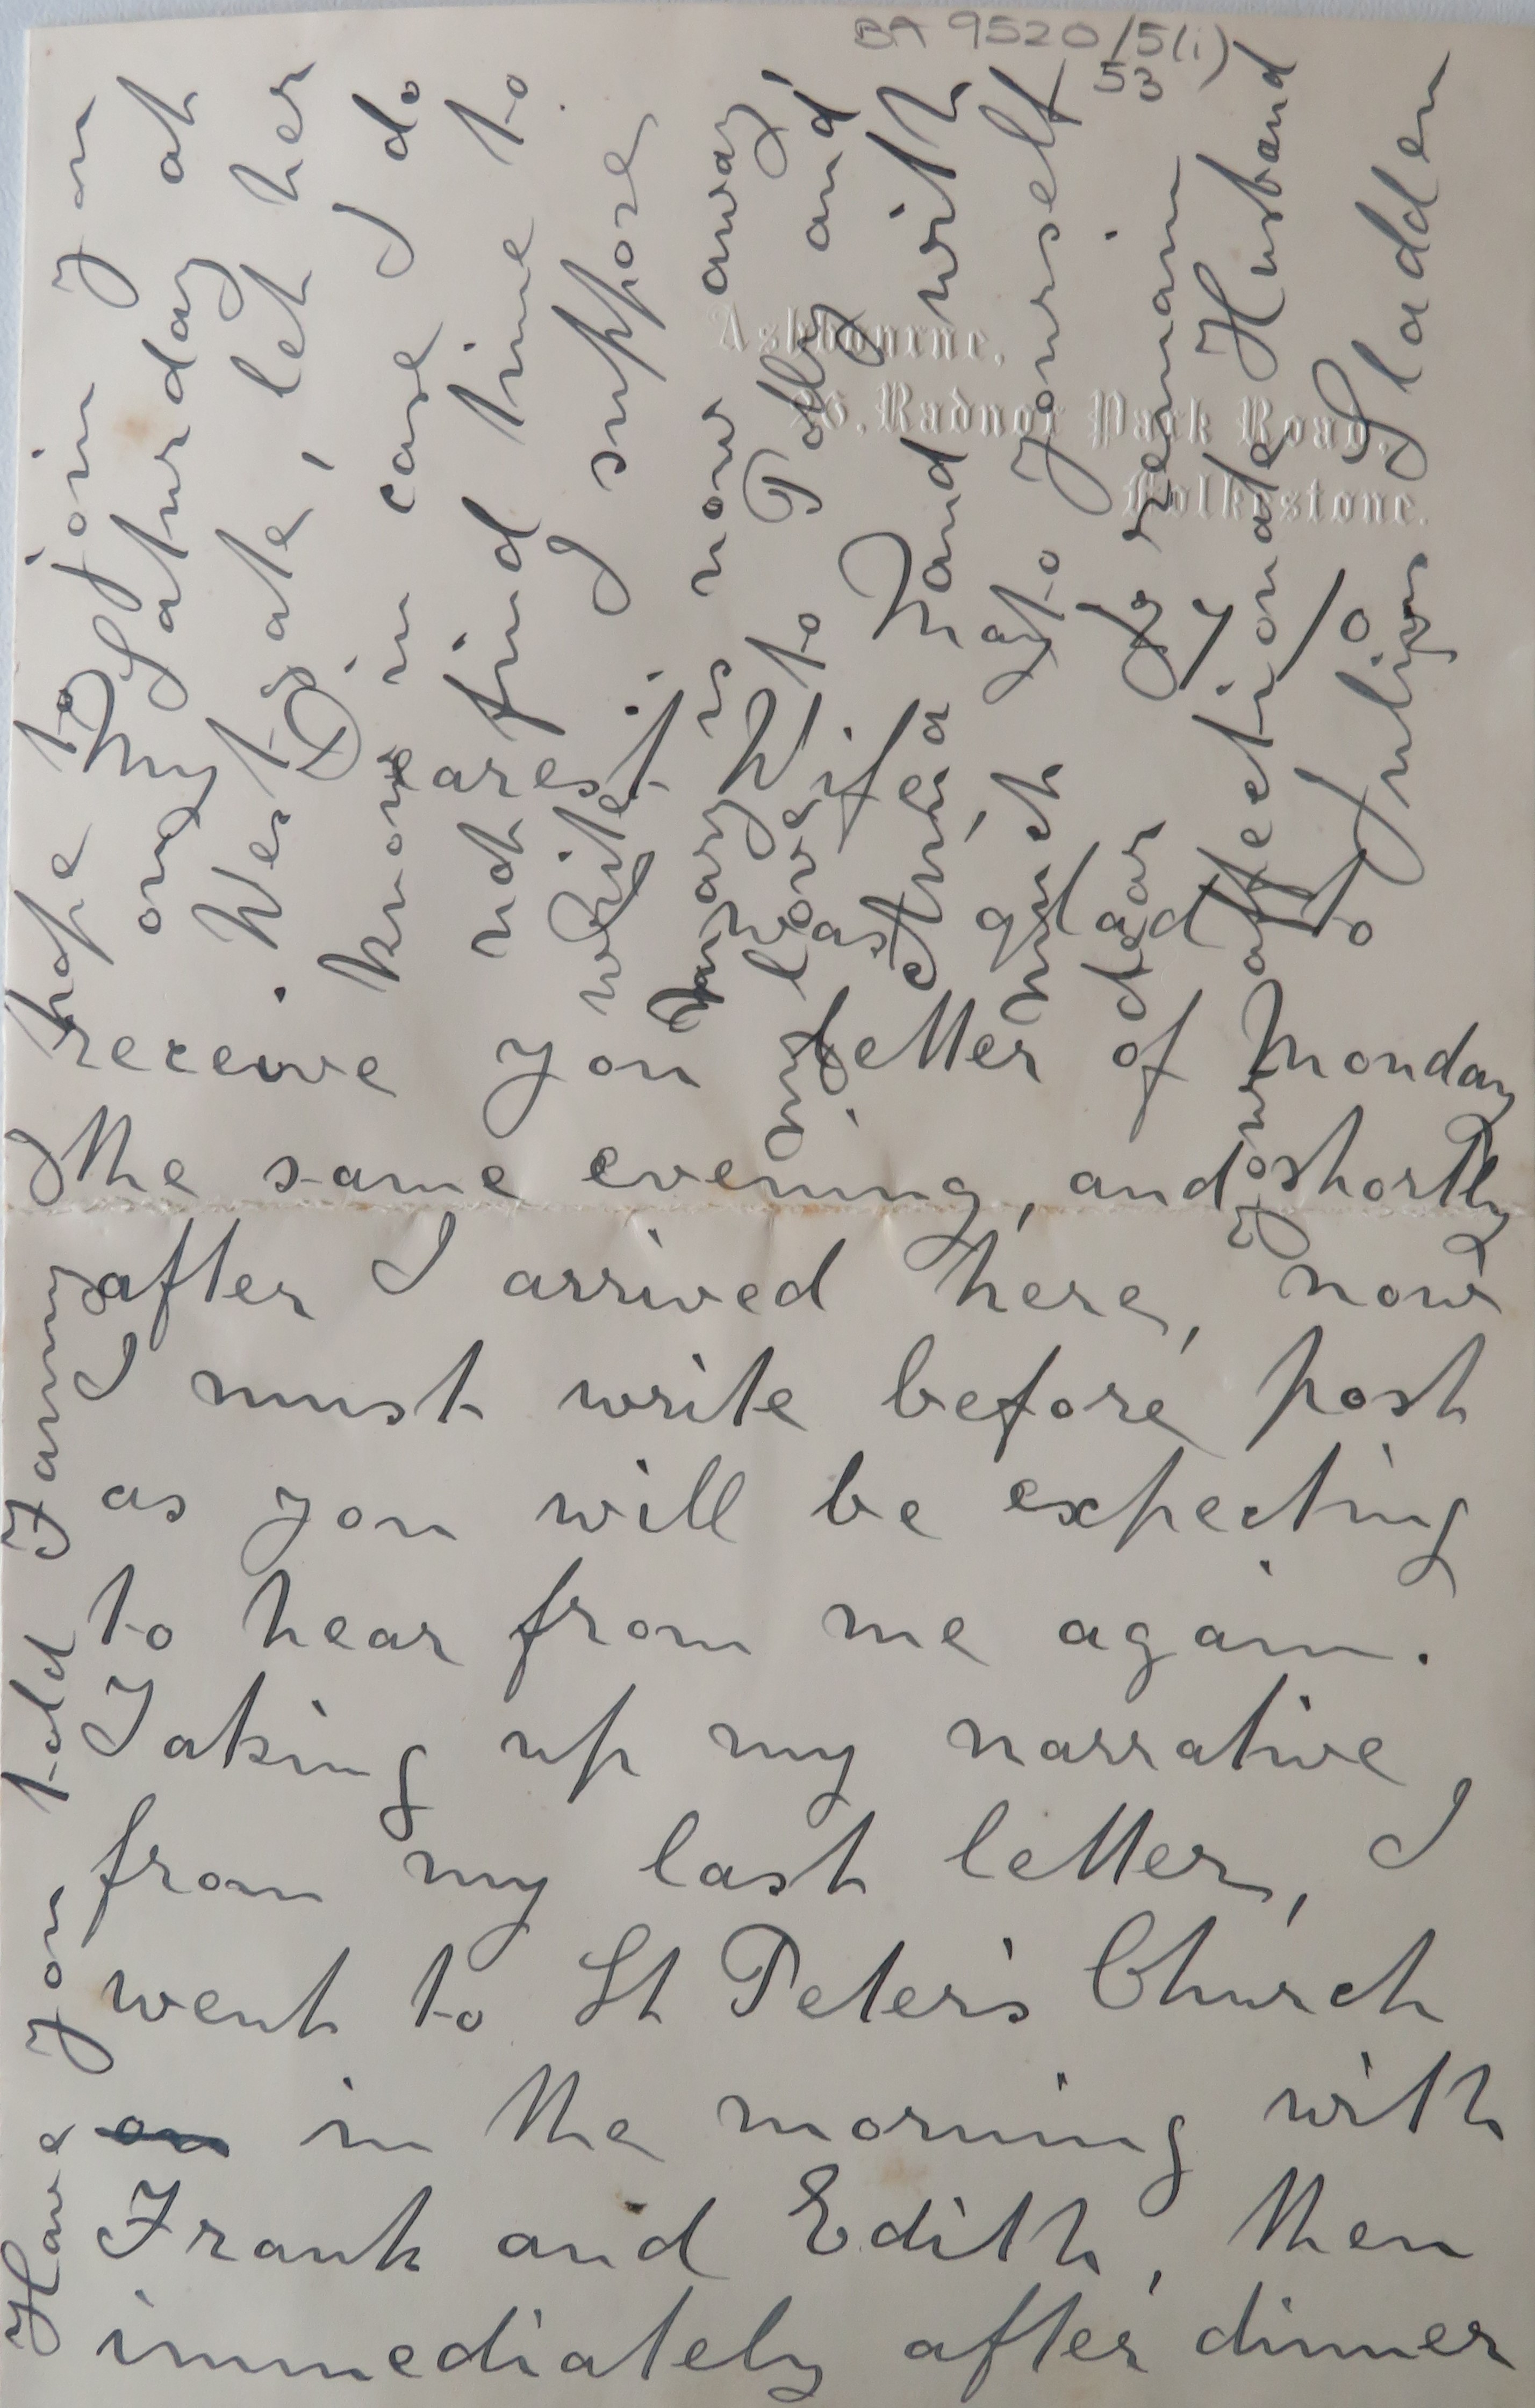 BA 9520/5(i)
53
Ashbourne,
26, Radnor Park Road,
Folkestone.
My Dearest Wife
I was glad to
receive you letter of Monday
the same evening, and shortly
after I arrived here, now
I must write before post
as you will be expecting
to hear from me again.
Taking up my narrative
from my last letter, I
went to St Peter's Church
on in the morning with
Frank and Edith, then
immediately after dinner
Have you told Fanny I hope to join you
on Saturday at
Westgate, let her
know in case I do
not find time to
write. I suppose
Mary is now away,
my love to Polly and
and with
much to yourself
dear I remain
your affectionate Husband
Julius Sladden